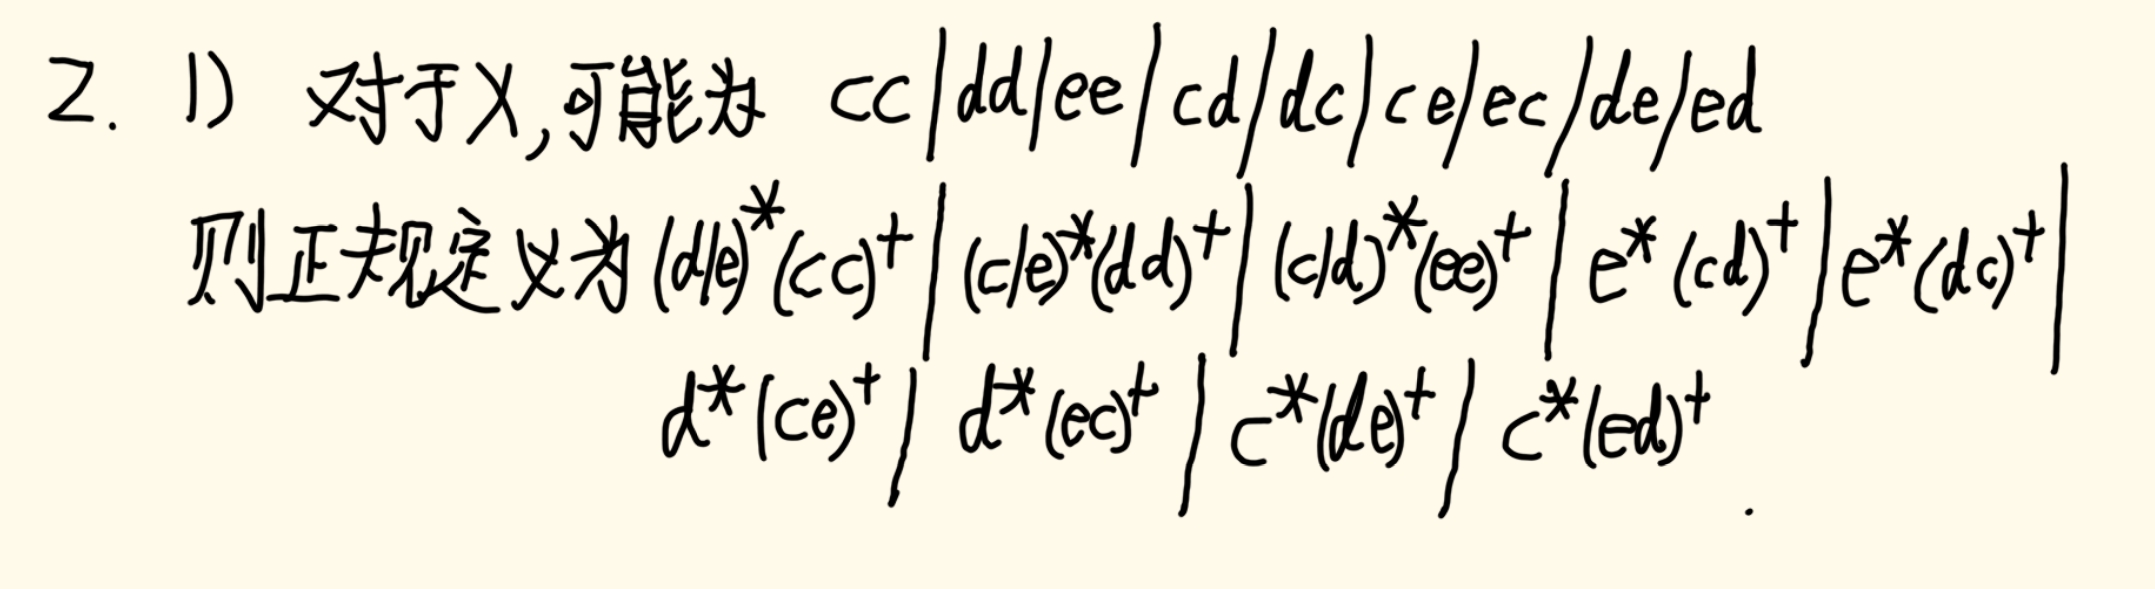 2. 1) 对于X,可能为 cc|dd|ee|cd|dc|ce|ec|de|ed
则正规定义为 (d|e)*(cc)⁺|(c|e)*(dd)⁺|(c|d)*(ee)⁺|e*(cd)⁺|e*(dc)⁺|
d*(ce)⁺|d*(ec)⁺|c*(de)⁺|c*(ed)⁺.